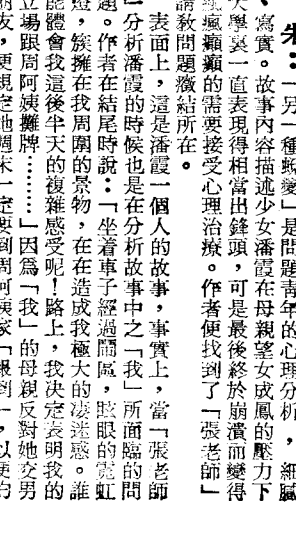 朱：「另一種蛻變」是問題青年的心理分析，細膩
、寫實。故事內容描述少女潘霞在母親望女成鳳的壓力下
大學裏一直表現得相當出鋒頭，可是最後終於崩潰而變得
瘋瘋癲癲的需要接受心理治療。作者便找到了「張老師」
請教問題癥結所在。
表面上，這是潘霞一個人的故事，事實上，當「張老師
」分析潘霞的時候也是在分析故事中之「我」所面臨的問
題。作者在結尾時說：「坐着車子經過鬧區，眩眼的霓虹
燈，簇擁在我周圍的景物，在在造成我極大的凄迷感。誰
能體會我這後半天的複雜感受呢！路上，我決定表明我的
立場跟周阿姨攤牌………」因爲「我」的母親反對她交男
朋友，更規定她周末一定要到周阿姨家「報到」，以便